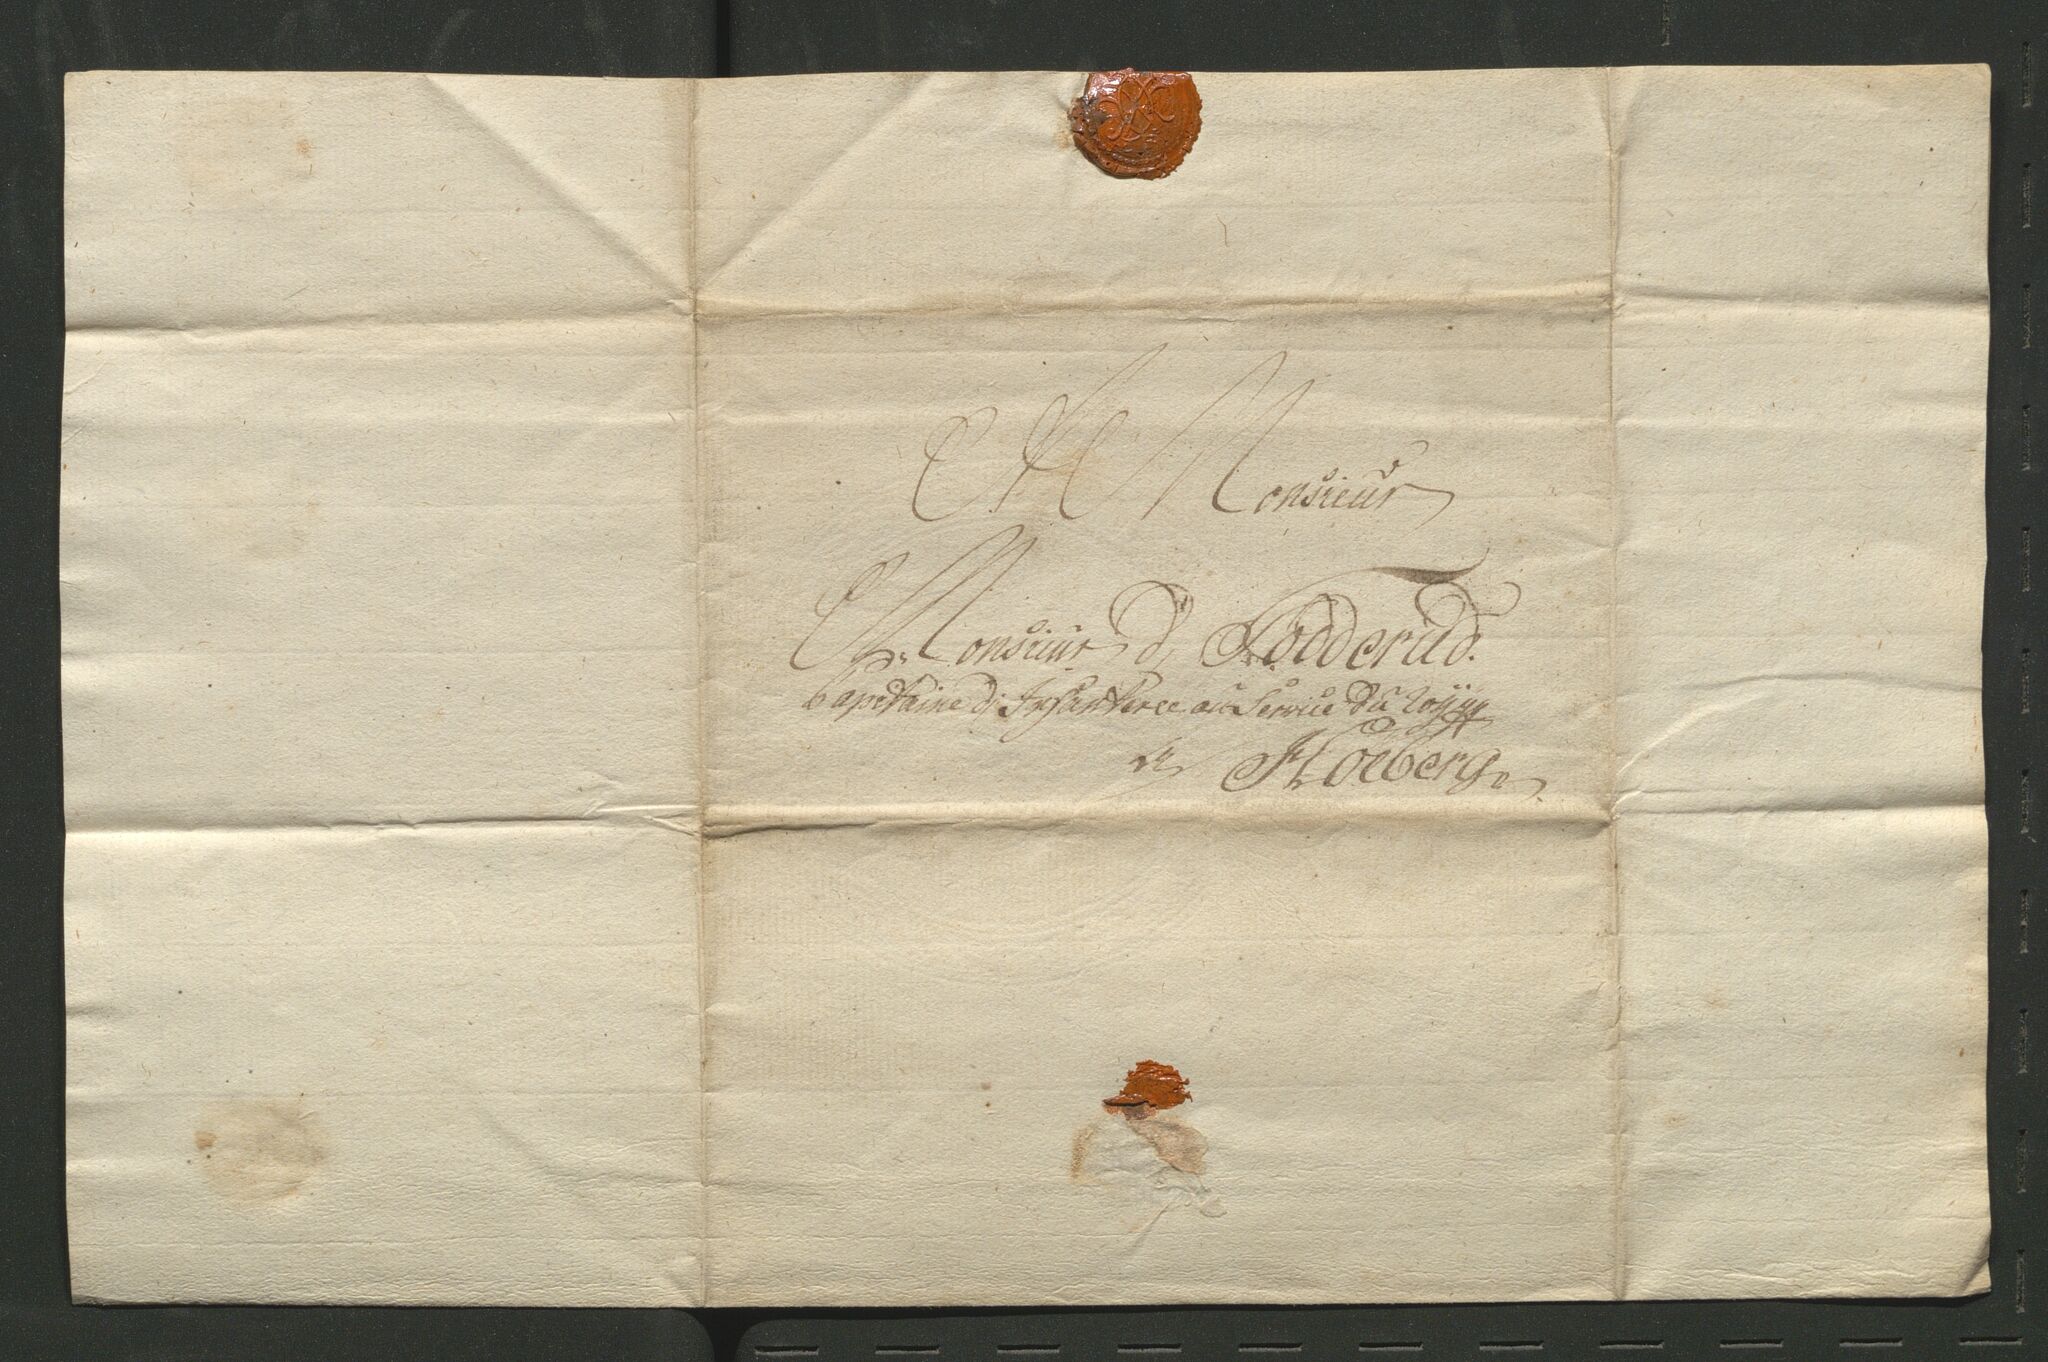 A Monsieur
Monsieur d, Todderud.
Capetaine d, Infanteree au Service du Royyy
a Hoeberg